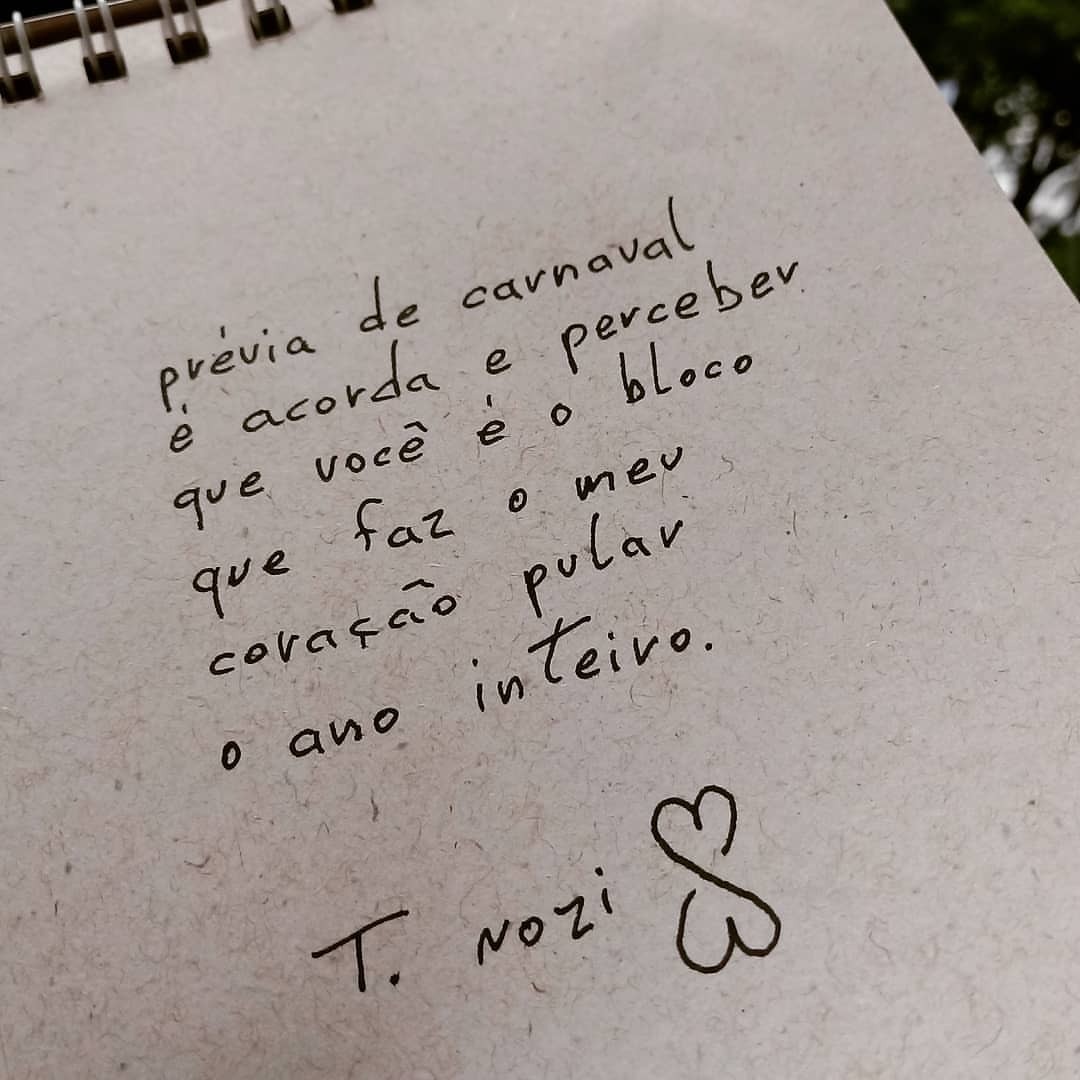 prévia de carnaval
é acorda e perceber
que você é o bloco
que faz o meu
coração pular
o ano inteiro.
T. Nozi